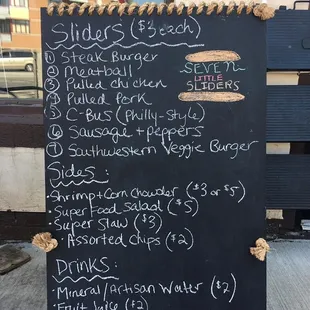 Sliders ($3 each)
① Steak Burger
② Meatball
③ Pulled Chicken
④ Pulled Pork
⑤ C-Bus (Philly-Style)
⑥ Sausage + Peppers
⑦ Southwestern Veggie Burger
SEVEN
LITTLE
SLIDERS
Sides:
• Shrimp + Corn Chowder ($3 or $5)
• Super Food Salad ($5)
• Super Slaw ($3)
• Assorted Chips ($2)
Drinks:
• Mineral/Artisan Water ($2)
• Fruit Juice ($2)